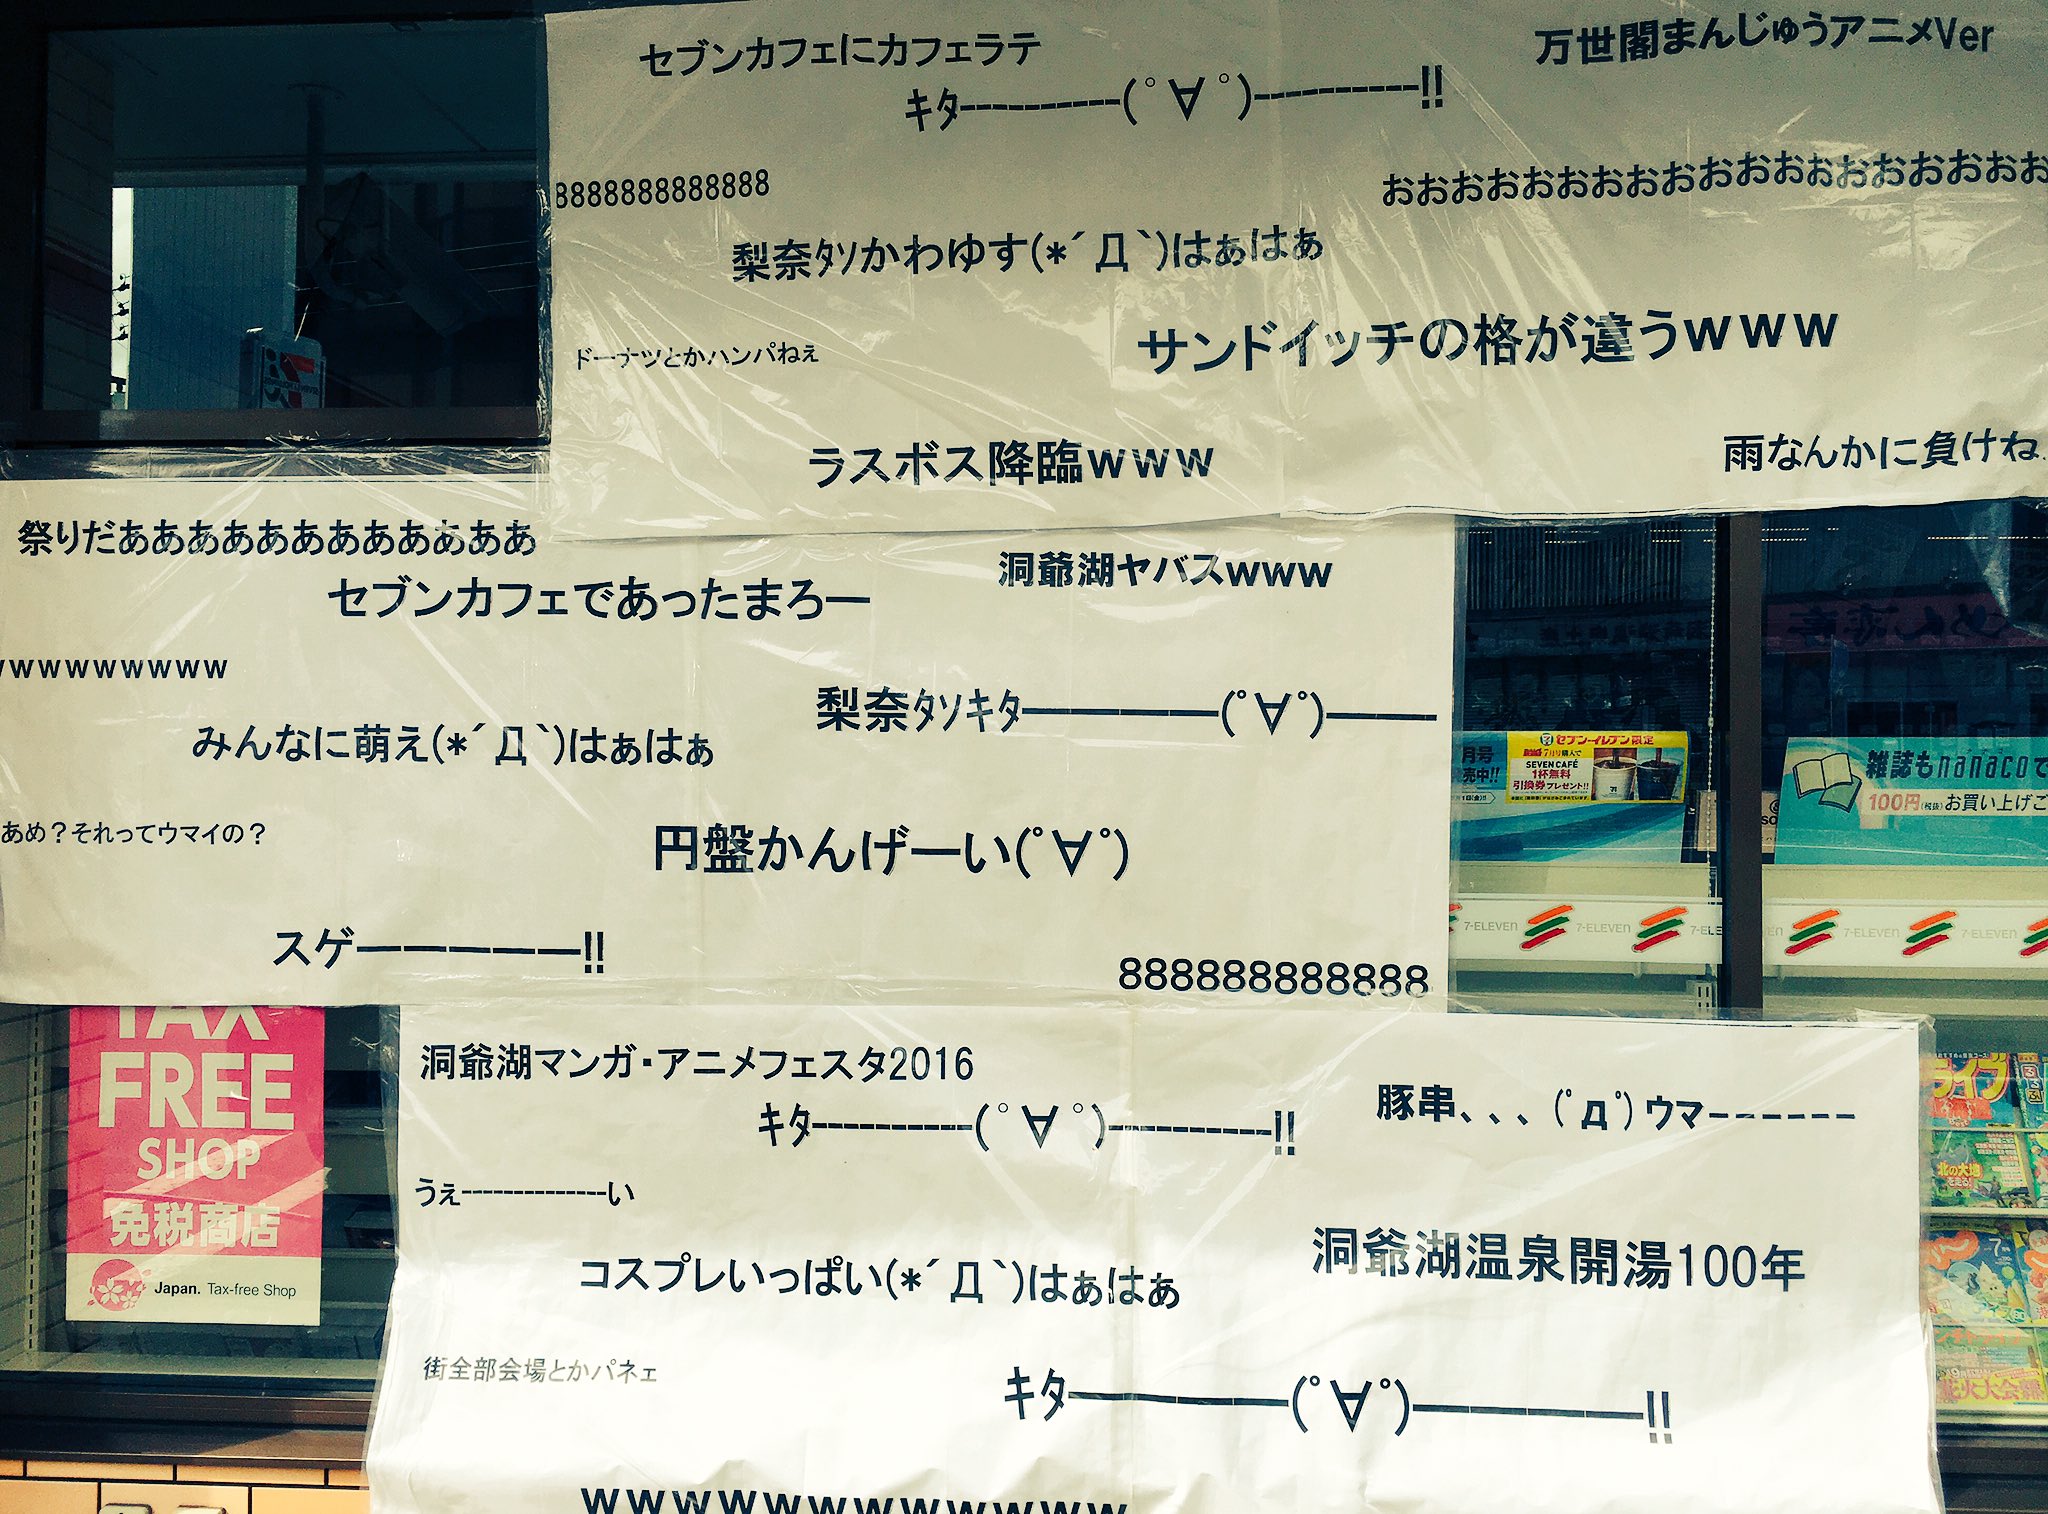 セブンカフェにカフェラテ
キタ----------(ﾟ∀ﾟ)----------!!
万世閣まんじゅうアニメVer
8888888888888
おおおおおおおおおおおおおおおおおおお
梨奈ﾀｿかわゆす(*´Д`)はぁはぁ
ドーナツとかハンパねぇ
サンドイッチの格が違うwww
ラスボス降臨www
雨なんかに負けね
祭りだああああああああああああ
セブンカフェであったまろー
洞爺湖ヤバスwww
wwwwwwwww
梨奈ﾀｿｷﾀ――――(ﾟ∀ﾟ)――
みんなに萌え(*´Д`)はぁはぁ
あめ？それってウマイの？
円盤かんげーい(ﾟ∀ﾟ)
スゲ―――――!!
888888888888
セブン-イレブン限定
7月号購入で
SEVEN CAFÉ
1杯無料
引換券プレゼント!!
月号
売中!!
雑誌もnanacoで
100円(税抜)お買い上げご
7-ELEVEN
7-ELEVEN
7-ELE
7-ELEVEN
7-ELEVEN
TAX
FREE
SHOP
免税商店
Japan. Tax-free Shop
洞爺湖マンガ・アニメフェスタ2016
キタ----------(ﾟ∀ﾟ)----------!!
豚串、、、(ﾟДﾟ)ウマ------
うぇ--------------い
コスプレいっぱい(*´Д`)はぁはぁ
洞爺湖温泉開湯100年
街全部会場とかパネェ
キタ――――(ﾟ∀ﾟ)――――!!
wwwwwwwwwwww
ライブ
北の大地
花火大会